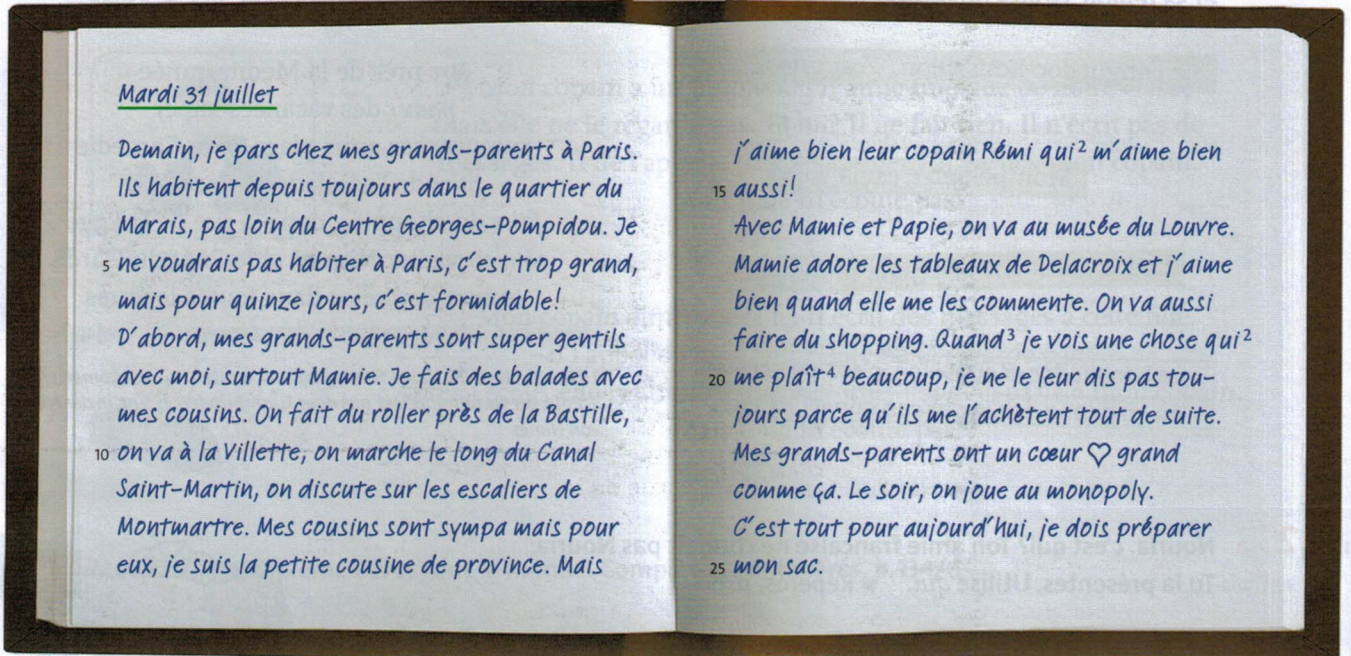 Mardi 31 juillet
Demain, je pars chez mes grands-parents à Paris.
Ils habitent depuis toujours dans le quartier du
Marais, pas loin du Centre Georges-Pompidou. Je
5 ne voudrais pas habiter à Paris, c'est trop grand,
mais pour quinze jours, c'est formidable!
D'abord, mes grands-parents sont super gentils
avec moi, surtout Mamie. Je fais des balades avec
mes cousins. On fait du roller près de la Bastille,
10 on va à la Villette, on marche le long du Canal
Saint-Martin, on discute sur les escaliers de
Montmartre. Mes cousins sont sympa mais pour
eux, je suis la petite cousine de province. Mais
j'aime bien leur copain Rémi qui² m'aime bien
15 aussi!
Avec Mamie et Papie, on va au musée du Louvre.
Mamie adore les tableaux de Delacroix et j'aime
bien quand elle me les commente. On va aussi
faire du shopping. Quand³ je vois une chose qui²
20 me plaît⁴ beaucoup, je ne le leur dis pas tou-
jours parce qu'ils me l'achètent tout de suite.
Mes grands-parents ont un cœur ♡ grand
comme ça. Le soir, on joue au monopoly.
C'est tout pour aujourd'hui, je dois préparer
25 mon sac.